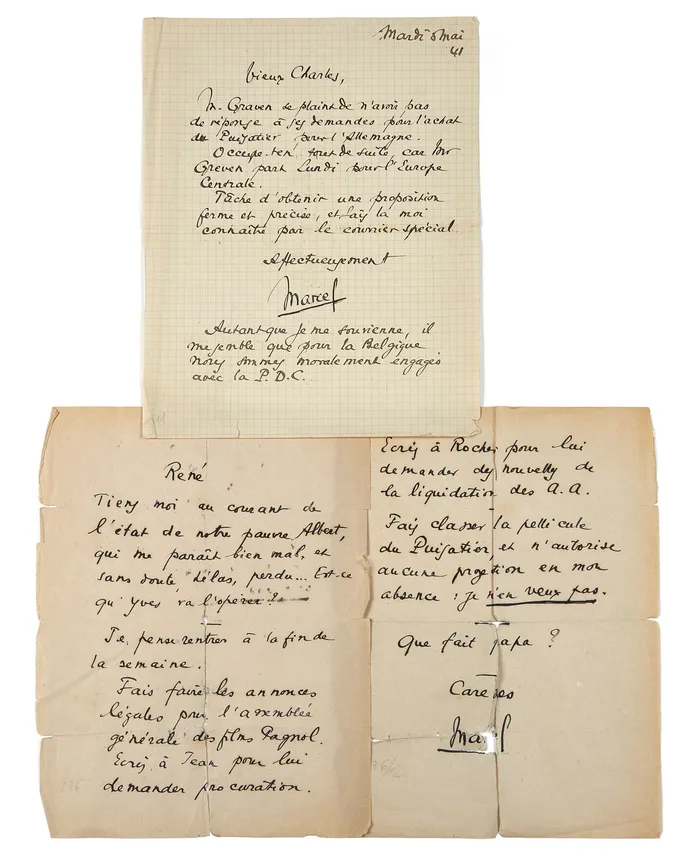 Mardi 6 mai
41
Vieux Charles,
M. Greven se plaint de n'avoir pas
de réponse à ses demandes pour l'achat
du Puisatier pour l'Allemagne.
Occupe-t'en tout de suite, car Mr
Greven part Lundi pour l'Europe
Centrale.
Tâche d'obtenir une proposition
ferme et précise, et fais la moi
connaître par le courrier spécial
Affectueusement
Marcel
Autant que je me souvienne, il
me semble que pour la Belgique
nous sommes moralement engagés
avec la P.D.C.
René
Tiens moi au courant de
l'état de notre pauvre Albert,
qui me paraît bien mal, et
sans doute, hélas, perdu... Est-ce
qu'Yves va l'opérer ?
Je pense rentrer à la fin de
la semaine.
Fais faire les annonces
légales pour l'assemblée
générale des films Pagnol.
Ecris à Jean pour lui
demander procuration.
Ecris à Rocher pour lui
demander des nouvelles de
la liquidation des A.A.
Fais classer la pellicule
du Puisatier, et n'autorise
aucune projetion en mon
absence : je n'en veux pas.
Que fait papa ?
Caresses
Marcel